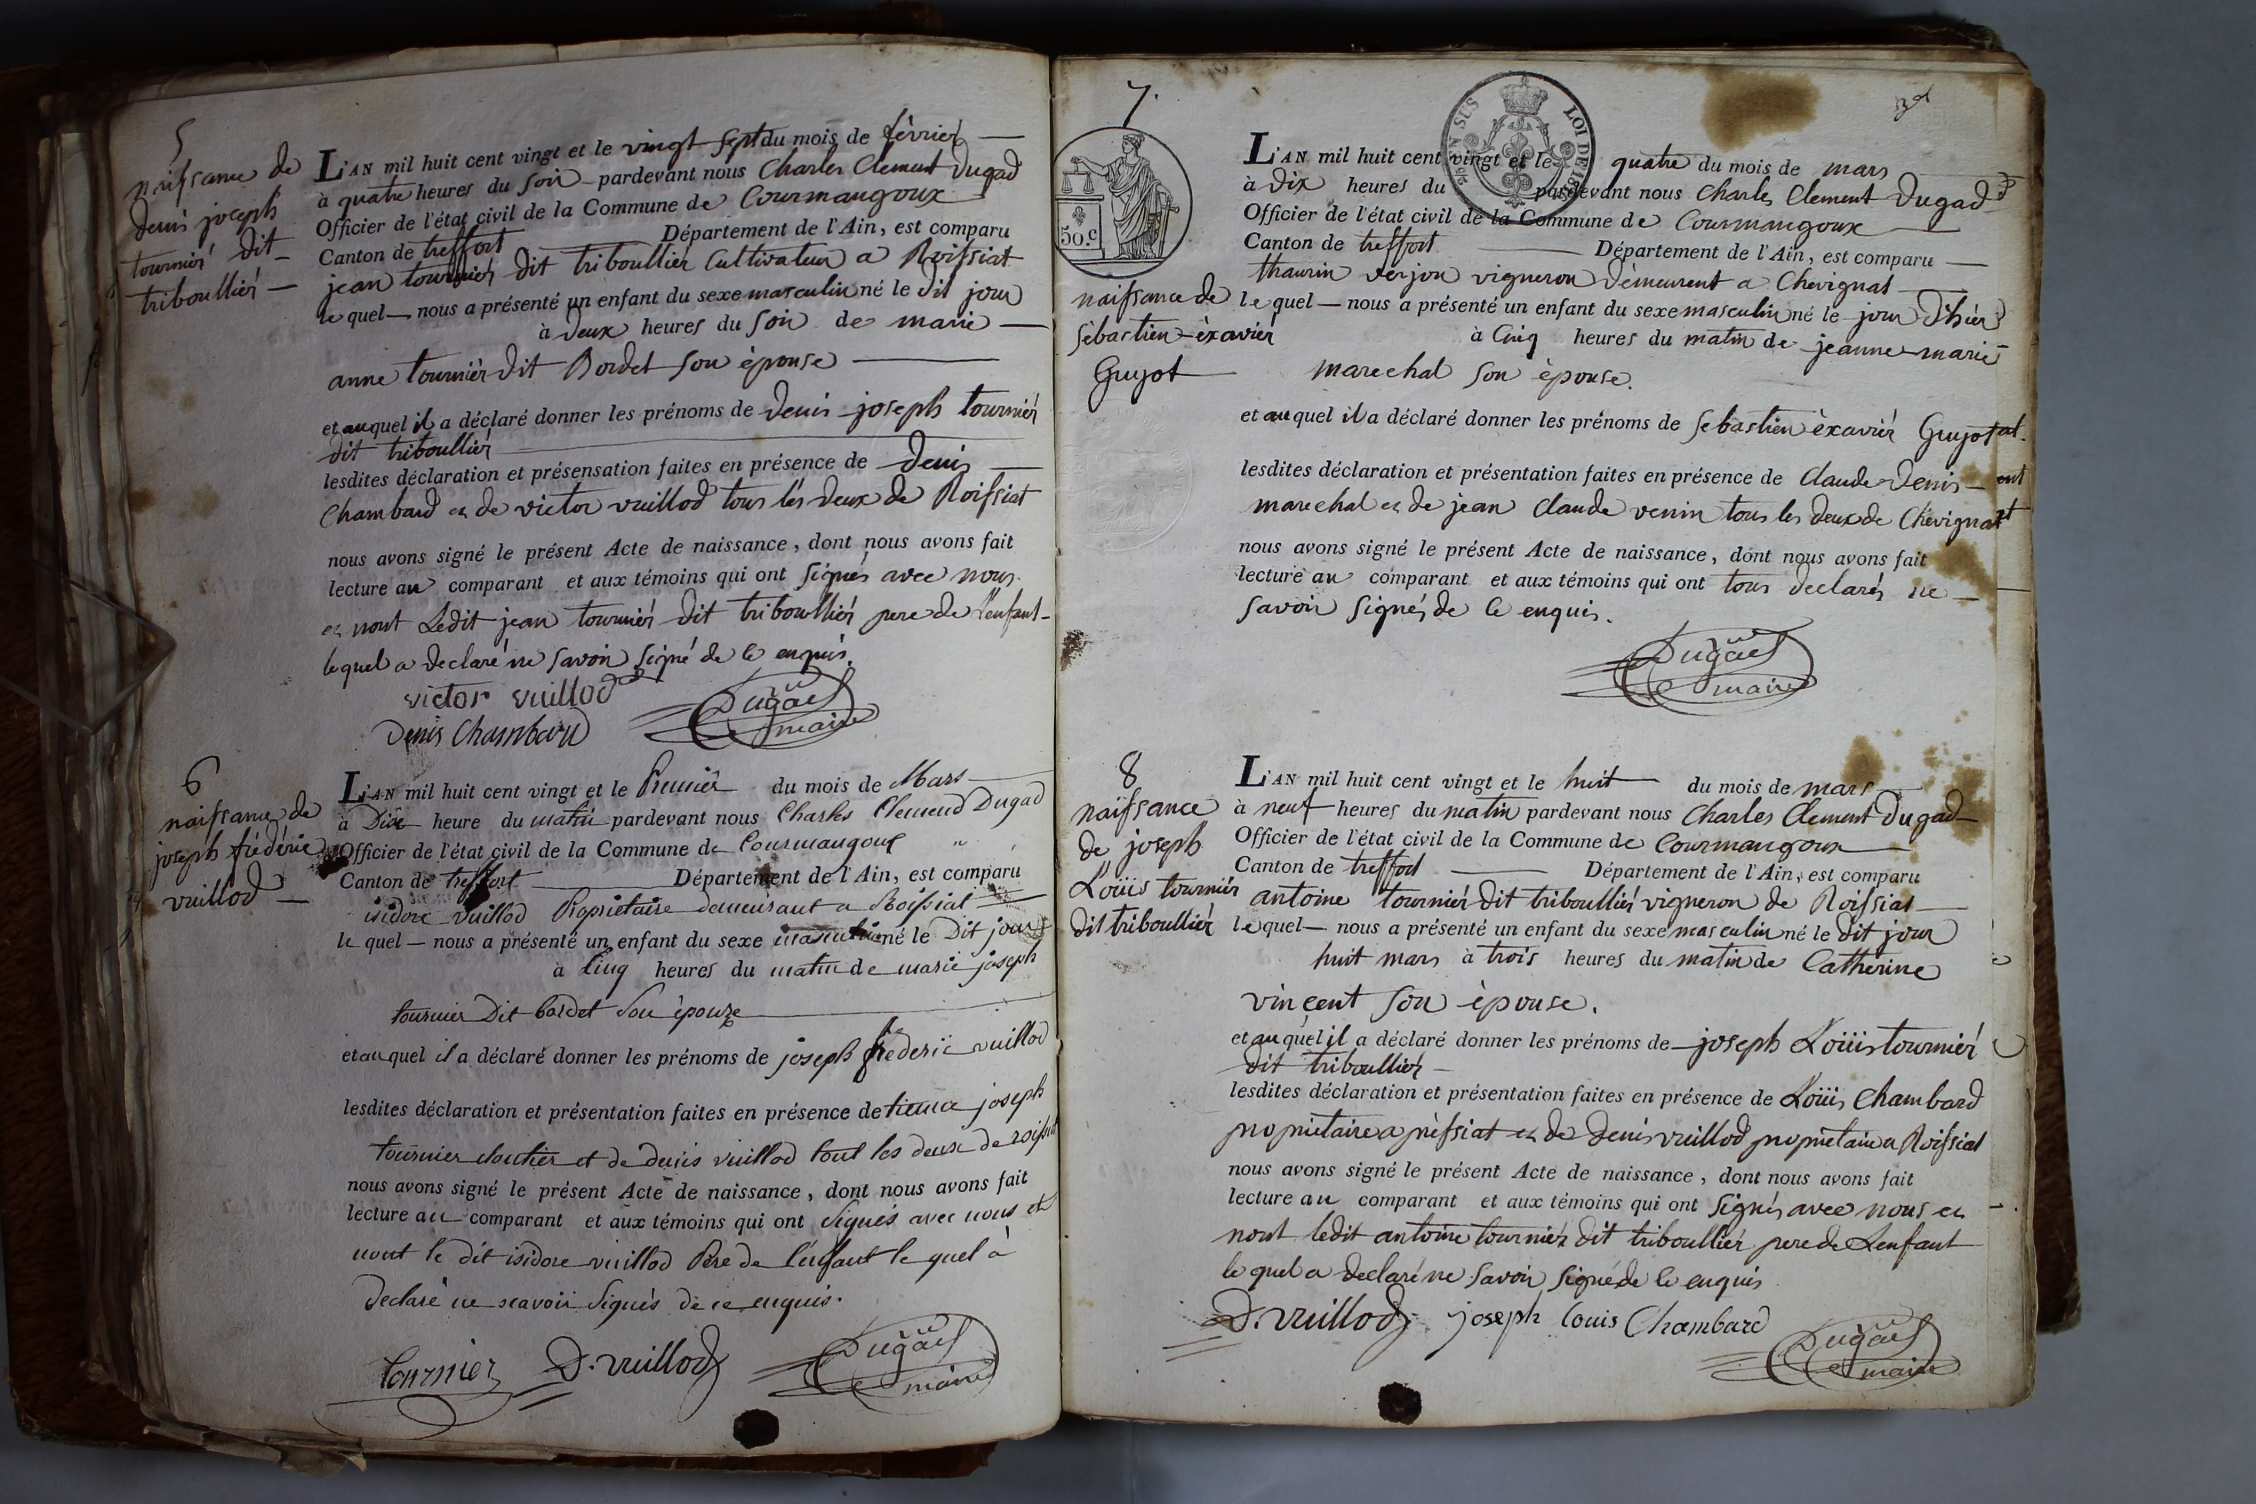 5
naissance de
denis joseph
tourniér dit
triboulliér
L'AN mil huit cent vingt et le vingt sept du mois de février
à quatre heures du soir pardevant nous Charles Clement Dugad
Officier de l'état civil de la Commune de Courmangoux
Canton de treffort Département de l'Ain, est comparu
jean tourniér dit triboulliér Cultivateur a Roissiat
le quel nous a présenté un enfant du sexe masculin né le dit jour
à deux heures du soir de marie
anne tourniér dit Bordet son èpouse
et auquel il a déclaré donner les prénoms de denis joseph tourniér
dit triboulliér
lesdites déclaration et présensation faites en présence de denis
Chambard et de victor vuillod tous les deux de Roissiat
nous avons signé le présent Acte de naissance, dont nous avons fait
lecture au comparant et aux témoins qui ont signés avec nous
et nont Ledit jean tourniér dit triboulliér pere de L'enfant
lequel a declaré ne savoir signé de ce enquis.
victor vuillod
Denis Chambard
Dugad
maire
6
naissance de
joseph frédéric
vuillod
L'AN mil huit cent vingt et le Premier du mois de Mars
à Dix heure du matin pardevant nous Charles Clemend Dugad
Officier de l'état civil de la Commune de Courmangoux
Canton de treffort Département de l'Ain, est comparu
isidore vuillod Propriétaire demeurant a Roissiat
le quel nous a présenté un enfant du sexe masculin né le Dit jour
à Cinq heures du matin de marie joseph
tournier Dit bordet Son èpouze
et au quel il a déclaré donner les prénoms de joseph frederic vuillod
lesdites déclaration et présentation faites en présence de joseph
tournier et de denis vuillod tout les deux de roissiat
nous avons signé le présent Acte de naissance, dont nous avons fait
lecture au comparant et aux témoins qui ont signés avec nous et
nont le dit isidore vuillod Pere de l'enfant le quel à
declaré ne scavoir Signés de ce enquis.
tournier D. vuillod
Dugad
maire
7.
3
50.C
LOI DE 18
EN SUS
naissance de
sébastien èxaviér
Guyot
L'AN mil huit cent vingt et le quatre du mois de mars
à dix heures du pardevant nous Charles Clement Dugad
Officier de l'état civil de la Commune de Courmangoux
Canton de treffort Département de l'Ain, est comparu
thaurin verjon vigneron demeurent a Chevignat
le quel nous a présenté un enfant du sexe masculin né le jour d'hiér
à Cinq heures du matin de jeanne marie
marechal son èpouse.
et au quel il a déclaré donner les prénoms de sebastien èxaviér Guyot
lesdites déclaration et présentation faites en présence de Claude Denis
marechal et de jean Claude venin tous les deux de Chevignat
nous avons signé le présent Acte de naissance, dont nous avons fait
lecture au comparant et aux témoins qui ont tous declarés ne
savoir signés de ce enquis.
Dugad
maire
8
naissance
de joseph
Loüis tourniér
dit triboulliér
L'AN mil huit cent vingt et le huit du mois de mars
à neuf heures du matin pardevant nous Charles Clement Dugad
Officier de l'état civil de la Commune de Courmangoux
Canton de treffort Département de l'Ain, est comparu
antoine tourniér dit triboulliér vigneron de Roissiat
le quel nous a présenté un enfant du sexe masculin né le dit jour
huit mars à trois heures du matin de Catherine
vincent son èpouse.
et au quel il a déclaré donner les prénoms de joseph Loüis tourniér
dit triboulliér
lesdites déclaration et présentation faites en présence de Loüis Chambard
propriétaire a prèssiat et de denis vuillod propriétaire a Roissiat
nous avons signé le présent Acte de naissance, dont nous avons fait
lecture au comparant et aux témoins qui ont signés avec nous et
nont ledit antoine tourniér dit triboulliér pere de Lenfant
le quel a declaré ne savoir signé de ce enquis
D. vuillod joseph louis Chambard
Dugad
maire